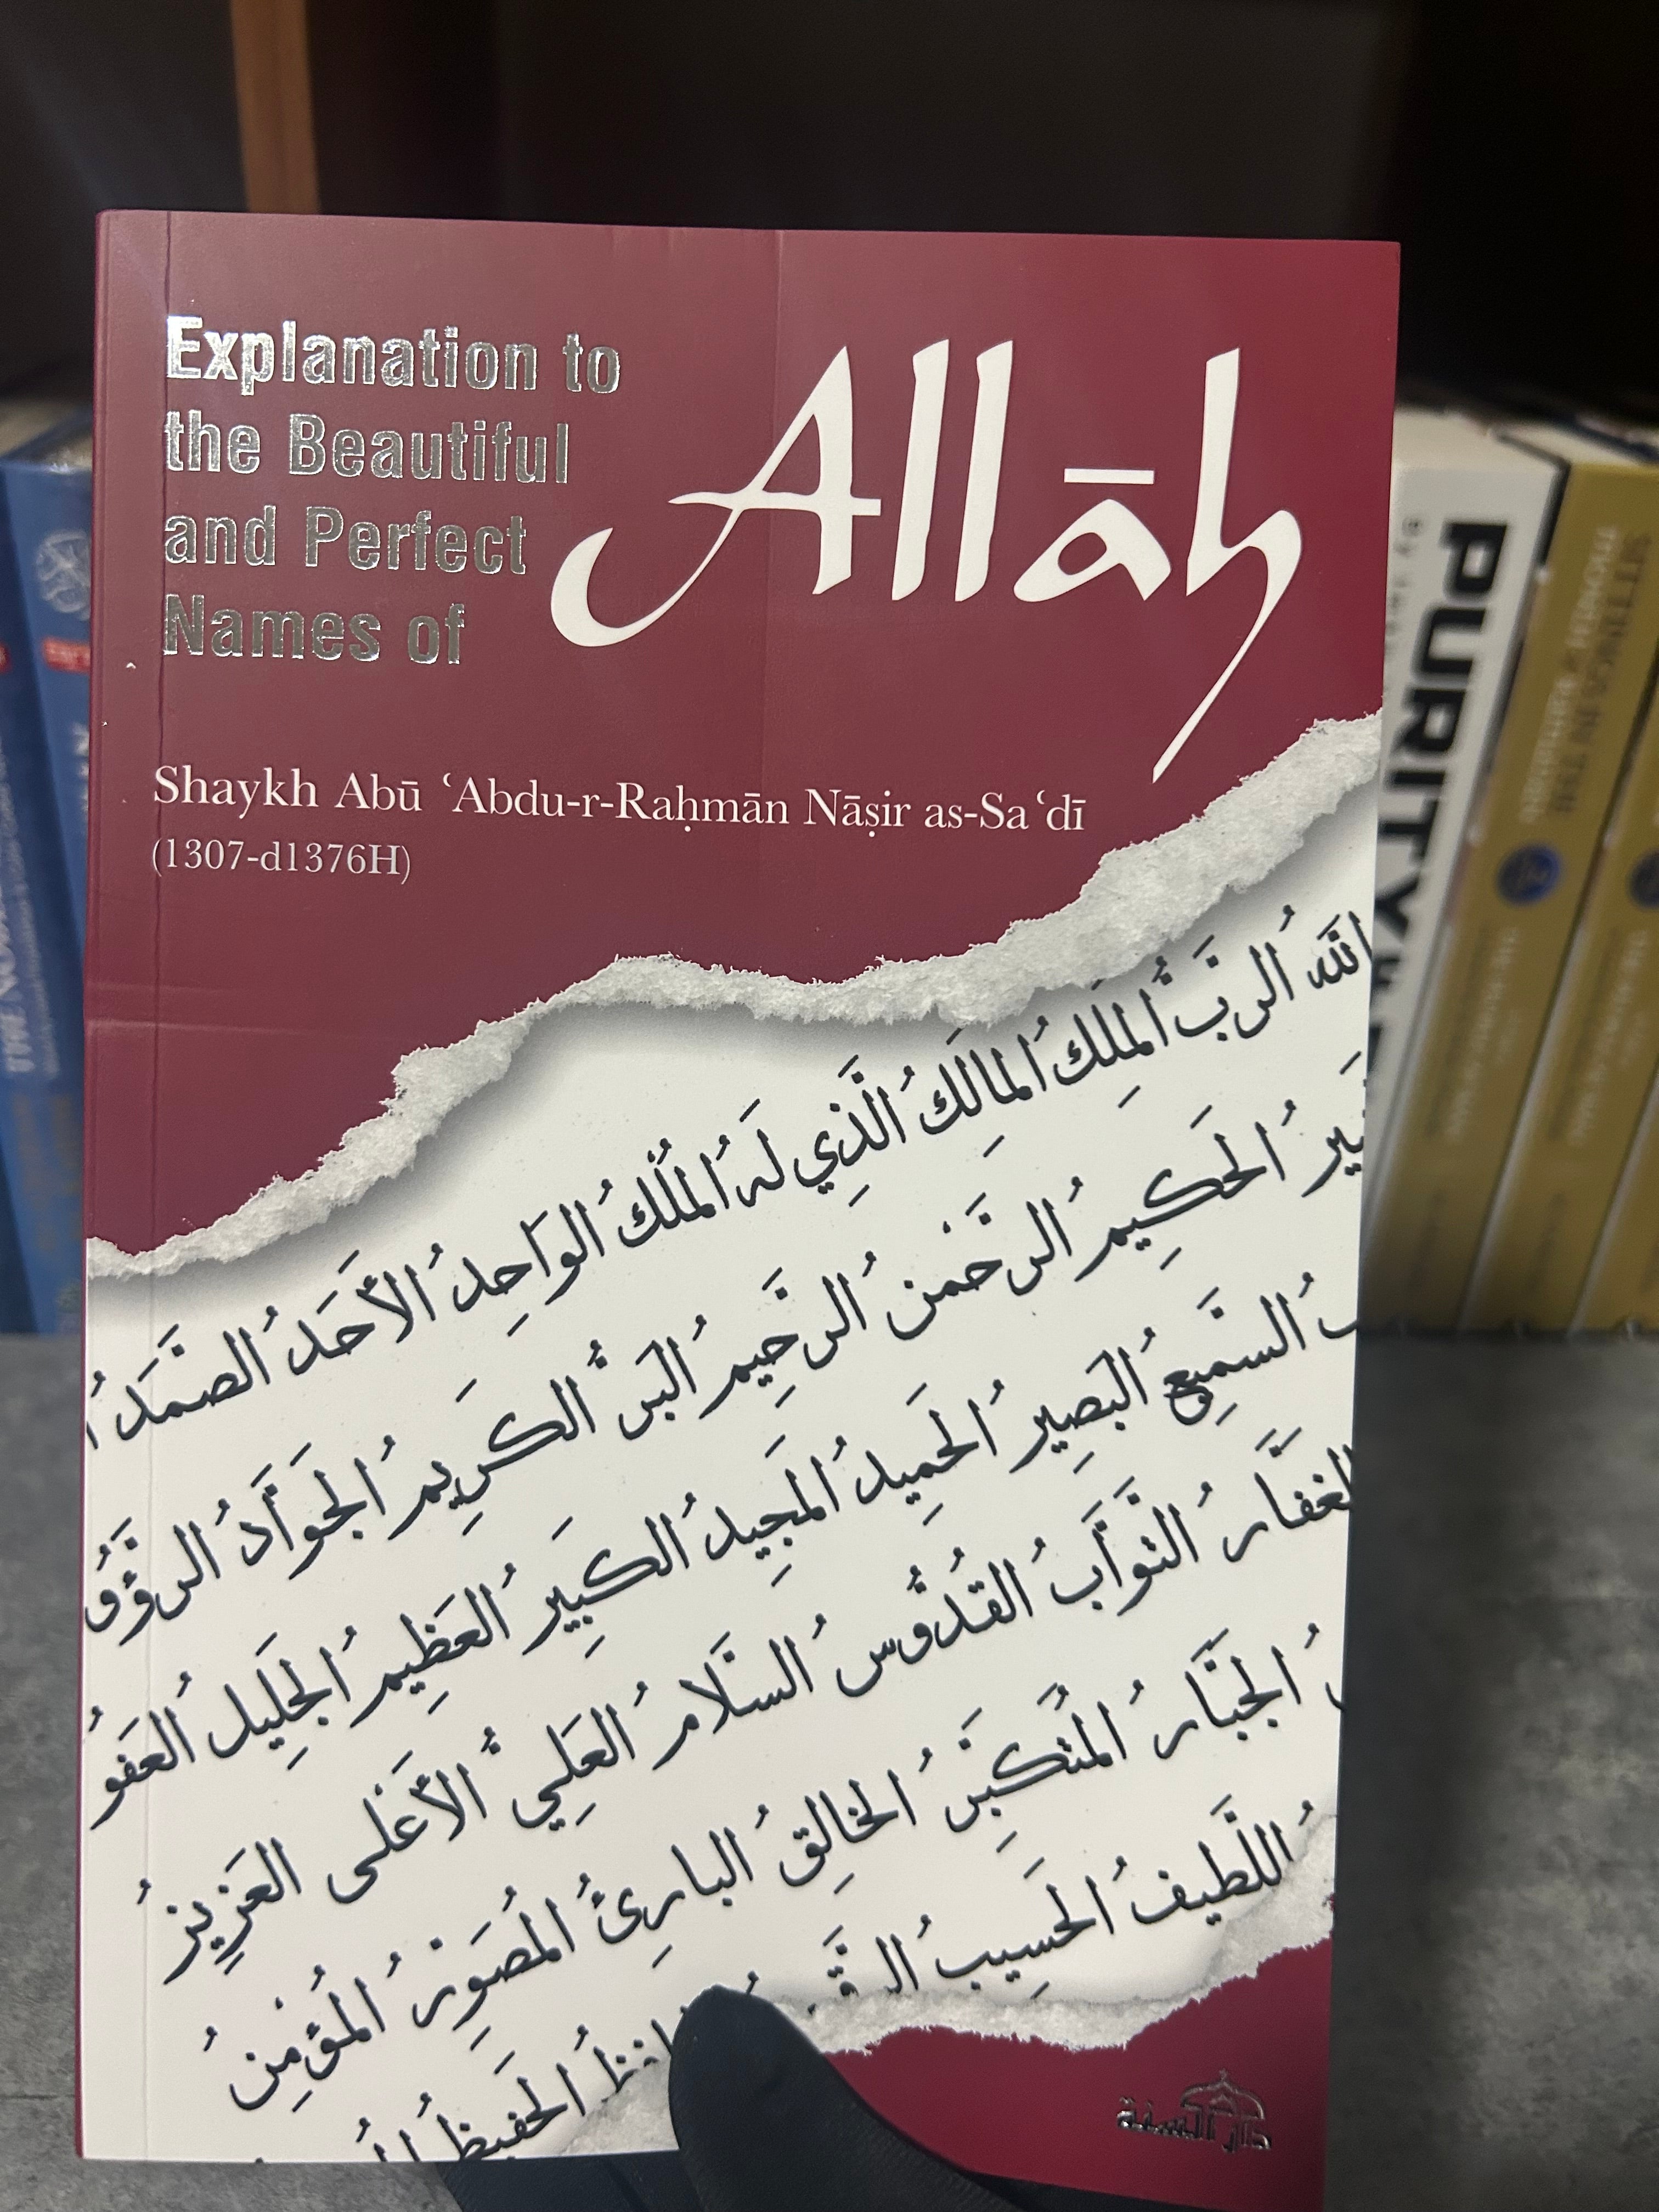 Explanation to
the Beautiful
and Perfect
Names of
Allāh
Shaykh Abū ʿAbdu-r-Raḥmān Nāṣir as-Saʿdī
(1307-d1376H)
اللهُ الرَّبُّ المَلِكُ المالِكُ الَّذِي لَهُ المُلْكُ الوَاحِدُ الأَحَدُ الصَّمَدُ
الحَكِيمُ الرَّحْمَنُ الرَّحِيمُ البَرُّ الكَرِيمُ الجَوَّادُ الرَّؤُ
السَّمِيعُ البَصِيرُ الحَمِيدُ المَجِيدُ الكَبِيرُ العَظِيمُ الجَلِيلُ العَفُوُّ
الغفَّارُ التَّوَّابُ القُدُّوسُ السَّلَامُ العَلِيُّ الأَعْلَى العَزِيزُ
الجَبَّارُ المُتَكَبِّرُ الخَالِقُ البارِئُ المُصَوِّرُ المُؤْمِنُ
اللَّطِيفُ الحَسِيبُ
الحَفِيظُ
دار السنة
PURITY